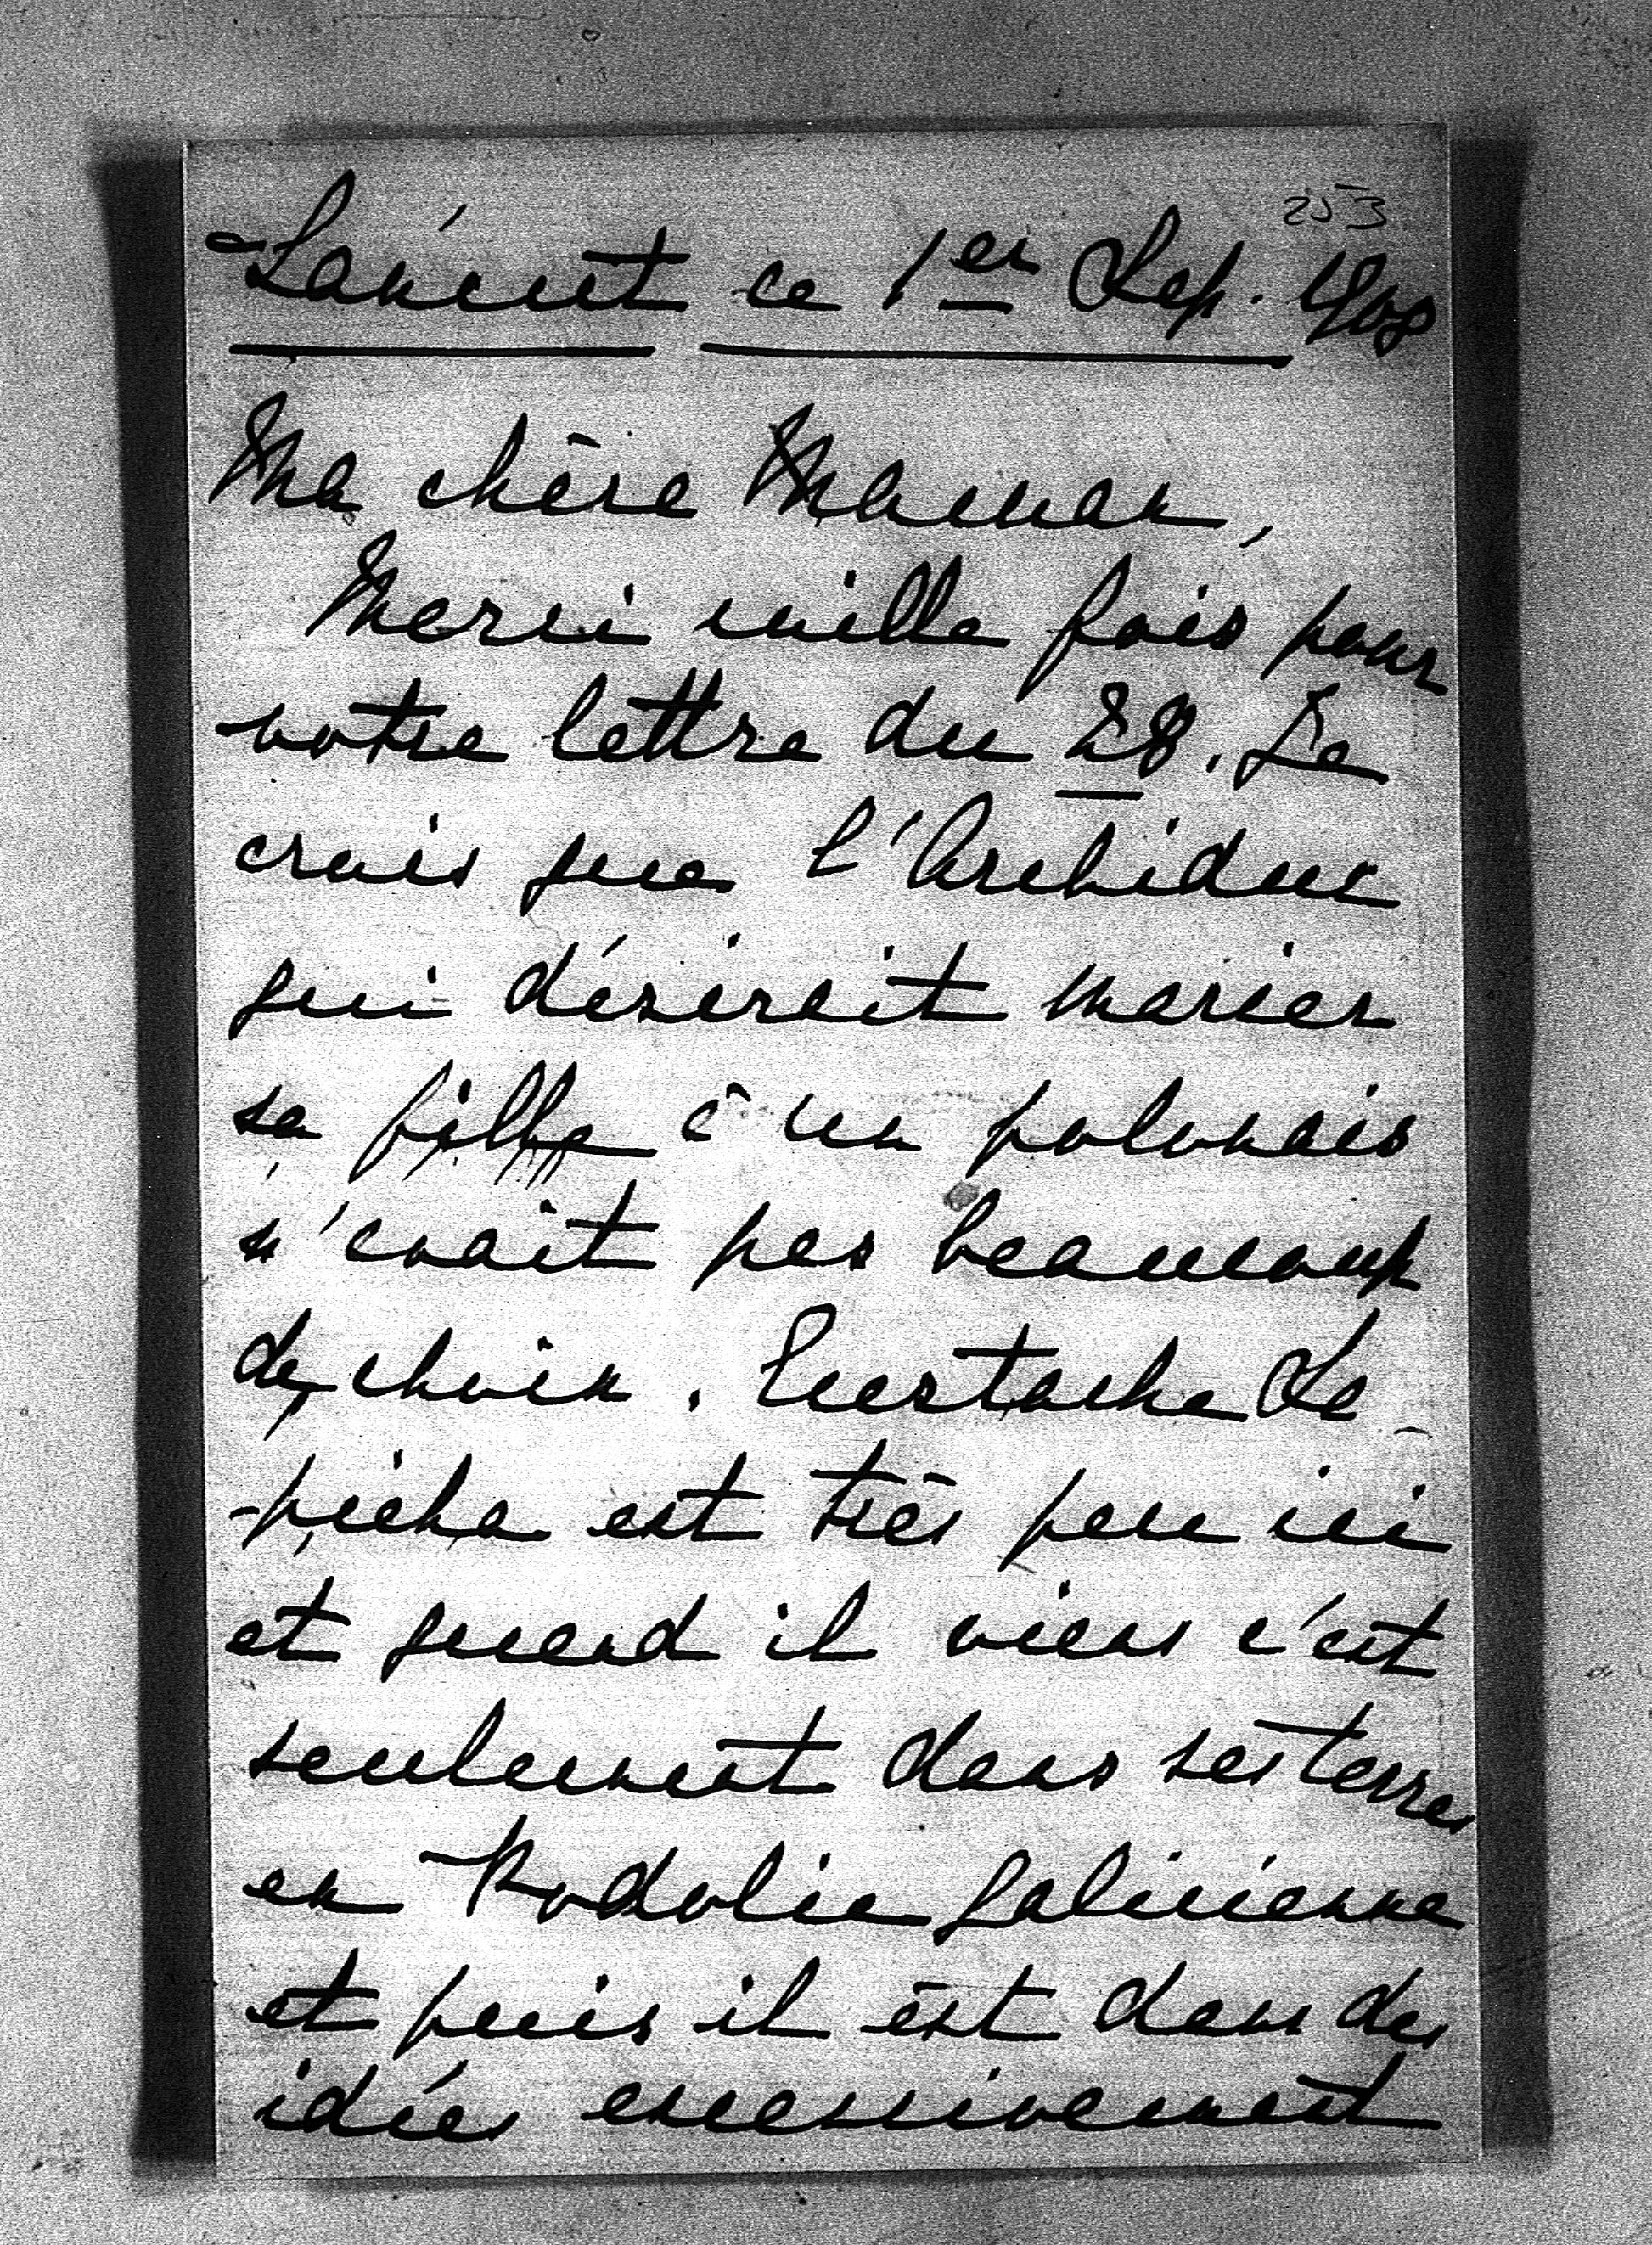 253
Łańcut ce 1er Sep. 1908
Ma chère Maman,
Merci mille fois pour
votre lettre du 28. Je
crois que l'Archiduc
qui désirait marier
sa fille à un polonais
n'avait pas beaucoup
de choix. Eustache Sa-
pieha est très peu ici
et quand il viens c'est
seulement dans ses terres
en Podolie galicienne
et puis il est dans des
idées excessivement